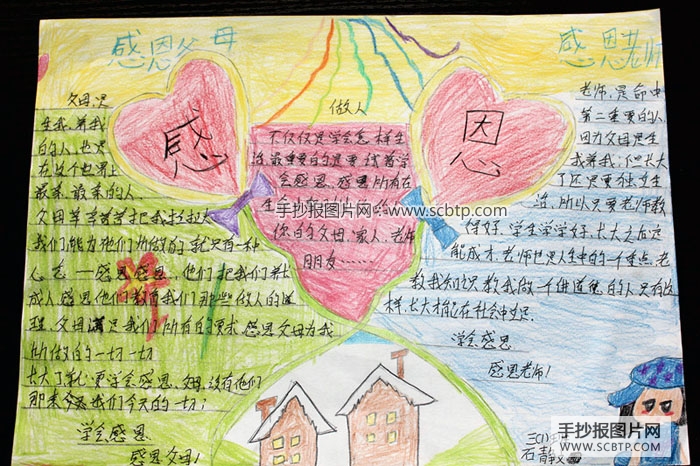 感恩父母
感恩老师
感
恩
父母,是
生我、养我
的人,也是
在这个世界上
最亲、最亲的人。
父母辛辛苦苦把我拉扯大
我们能为他们所做的就只有一种
心态——感恩感恩,他们把我们养
成人感恩他们教育我们那些做人的道
理,父母满足我们所有的要求感恩父母为我
所做的一切一切
长大了就更学会感恩、父母,没有他们
那来我们今天的一切;
学会感恩
感恩父母!
做人
不仅仅是学会怎样生
活最重要的是要试着学
会感恩,感恩所有在
你的父母、家人、老师
朋友……
老师,是命中
第二重要的人
因为父母是生
我养我,但长大
了还是要独立生
活,所以只要老师教
好,学生学学好,长大之后
能成才,老师也是人生中的一个重点,老
教我知识教我做一个讲道德的人只有这
样,长大才能在社会中生存.
学会感恩
感恩老师!
三(1)
石静
手抄报图片网--www.scbtp.com
手抄报图片网
WWW.SCBTP.COM